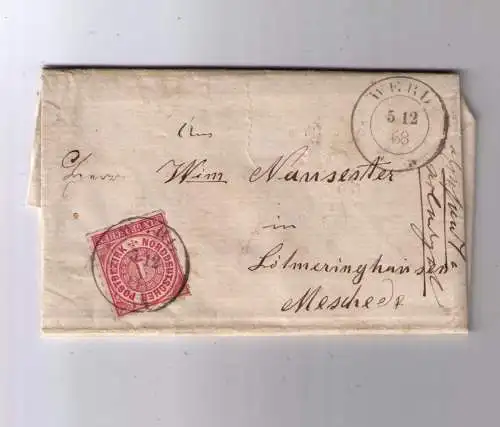 WERL
5 12
68
An
Herrn Wim Nansester
in
Lölmeringhausen
Meschede
NORDDEUTSCHER POSTBEZIRK
1